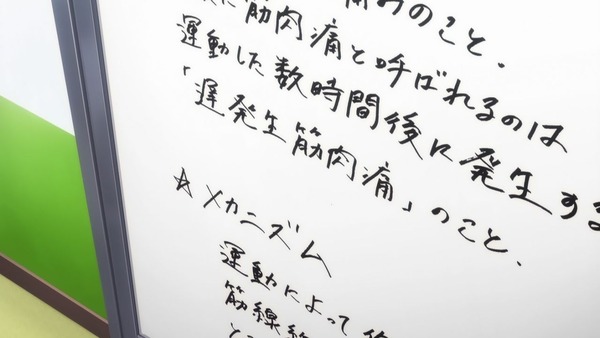 痛みのこと.
に筋肉痛と呼ばれるのは
運動した数時間後に発生する
「遅発生筋肉痛」のこと.
☆メカニズム
運動によって
筋線